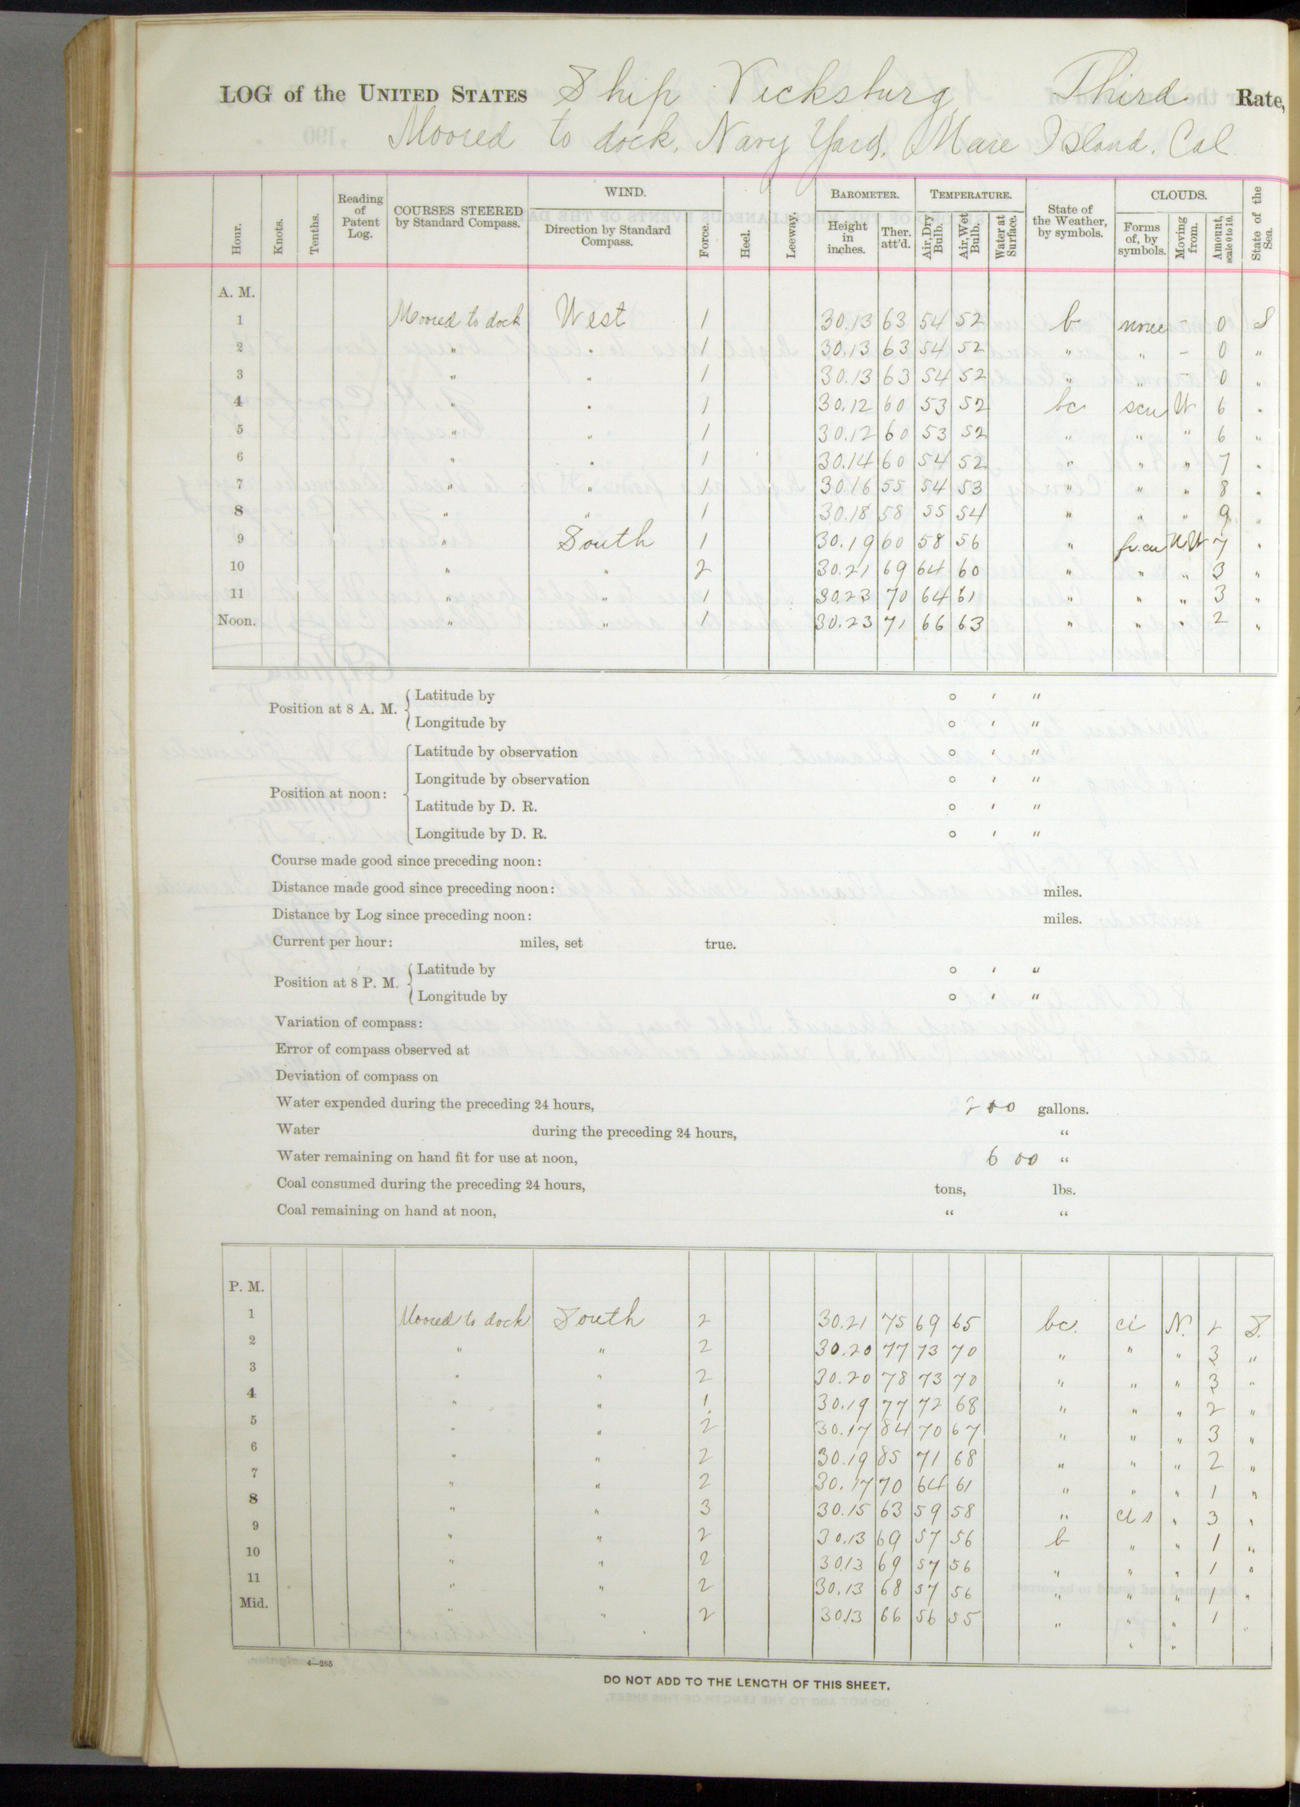 LOG of the UNITED STATES Ship Vicksburg Third Rate,
Moored to dock, Navy Yard, Mare Island, Cal
Hour. Knots. Tenths. Reading of Patent Log. COURSES STEERED by Standard Compass. WIND. Direction by Standard Compass. Force. Heel. Leeway. BAROMETER. Height in inches. Ther. att'd. TEMPERATURE. Air, Dry Bulb. Air, Wet Bulb. Water at Surface. State of the Weather, by symbols. CLOUDS. Forms of, by symbols. Moving from. Amount, scale 0 to 10. State of the Sea.
A. M.
1 Moored to dock West 1 30.13 63 54 52 b none - 0 S
2 " " 1 30.13 63 54 52 " " - 0 "
3 " " 1 30.13 63 54 52 " " - 0 "
4 " " 1 30.12 60 53 52 bc scu W 6 "
5 " " 1 30.12 60 53 52 " " " 6 "
6 " " 1 30.14 60 54 52 " " " 7 "
7 " " 1 30.16 55 54 53 " " " 8 "
8 " " 1 30.18 58 55 54 " " " 9 "
9 " South 1 30.19 60 58 56 " fr.cu NW 7 "
10 " " 2 30.21 69 64 60 " " " 3 "
11 " " 1 30.23 70 64 61 " " " 3 "
Noon. " " 1 30.23 71 66 63 " " " 2 "
Position at 8 A. M. { Latitude by ° ' "
Longitude by ° ' "
Position at noon: { Latitude by observation ° ' "
Longitude by observation ° ' "
Latitude by D. R. ° ' "
Longitude by D. R. ° ' "
Course made good since preceding noon:
Distance made good since preceding noon: miles.
Distance by Log since preceding noon: miles.
Current per hour: miles, set true.
Position at 8 P. M. { Latitude by ° ' "
Longitude by ° ' "
Variation of compass:
Error of compass observed at
Deviation of compass on
Water expended during the preceding 24 hours, 200 gallons.
Water during the preceding 24 hours, "
Water remaining on hand fit for use at noon, 600 "
Coal consumed during the preceding 24 hours, tons, lbs.
Coal remaining on hand at noon, " "
P. M.
1 Moored to dock South 2 30.21 75 69 65 bc. ci N. 2 S.
2 " " 2 30.20 77 73 70 " " " 3 "
3 " " 2 30.20 78 73 70 " " " 3 "
4 " " 1 30.19 77 72 68 " " " 2 "
5 " " 2 30.17 84 70 67 " " " 3 "
6 " " 2 30.19 85 71 68 " " " 2 "
7 " " 2 30.17 70 64 61 " " " 1 "
8 " " 3 30.15 63 59 58 " ci s " 3 "
9 " " 2 30.13 69 57 56 b " " 1 "
10 " " 2 30.13 69 57 56 " " " 1 "
11 " " 2 30.13 68 57 56 " " " 1 "
Mid. " " 2 30.13 66 56 55 " " " 1 "
" "
4—285
DO NOT ADD TO THE LENGTH OF THIS SHEET.